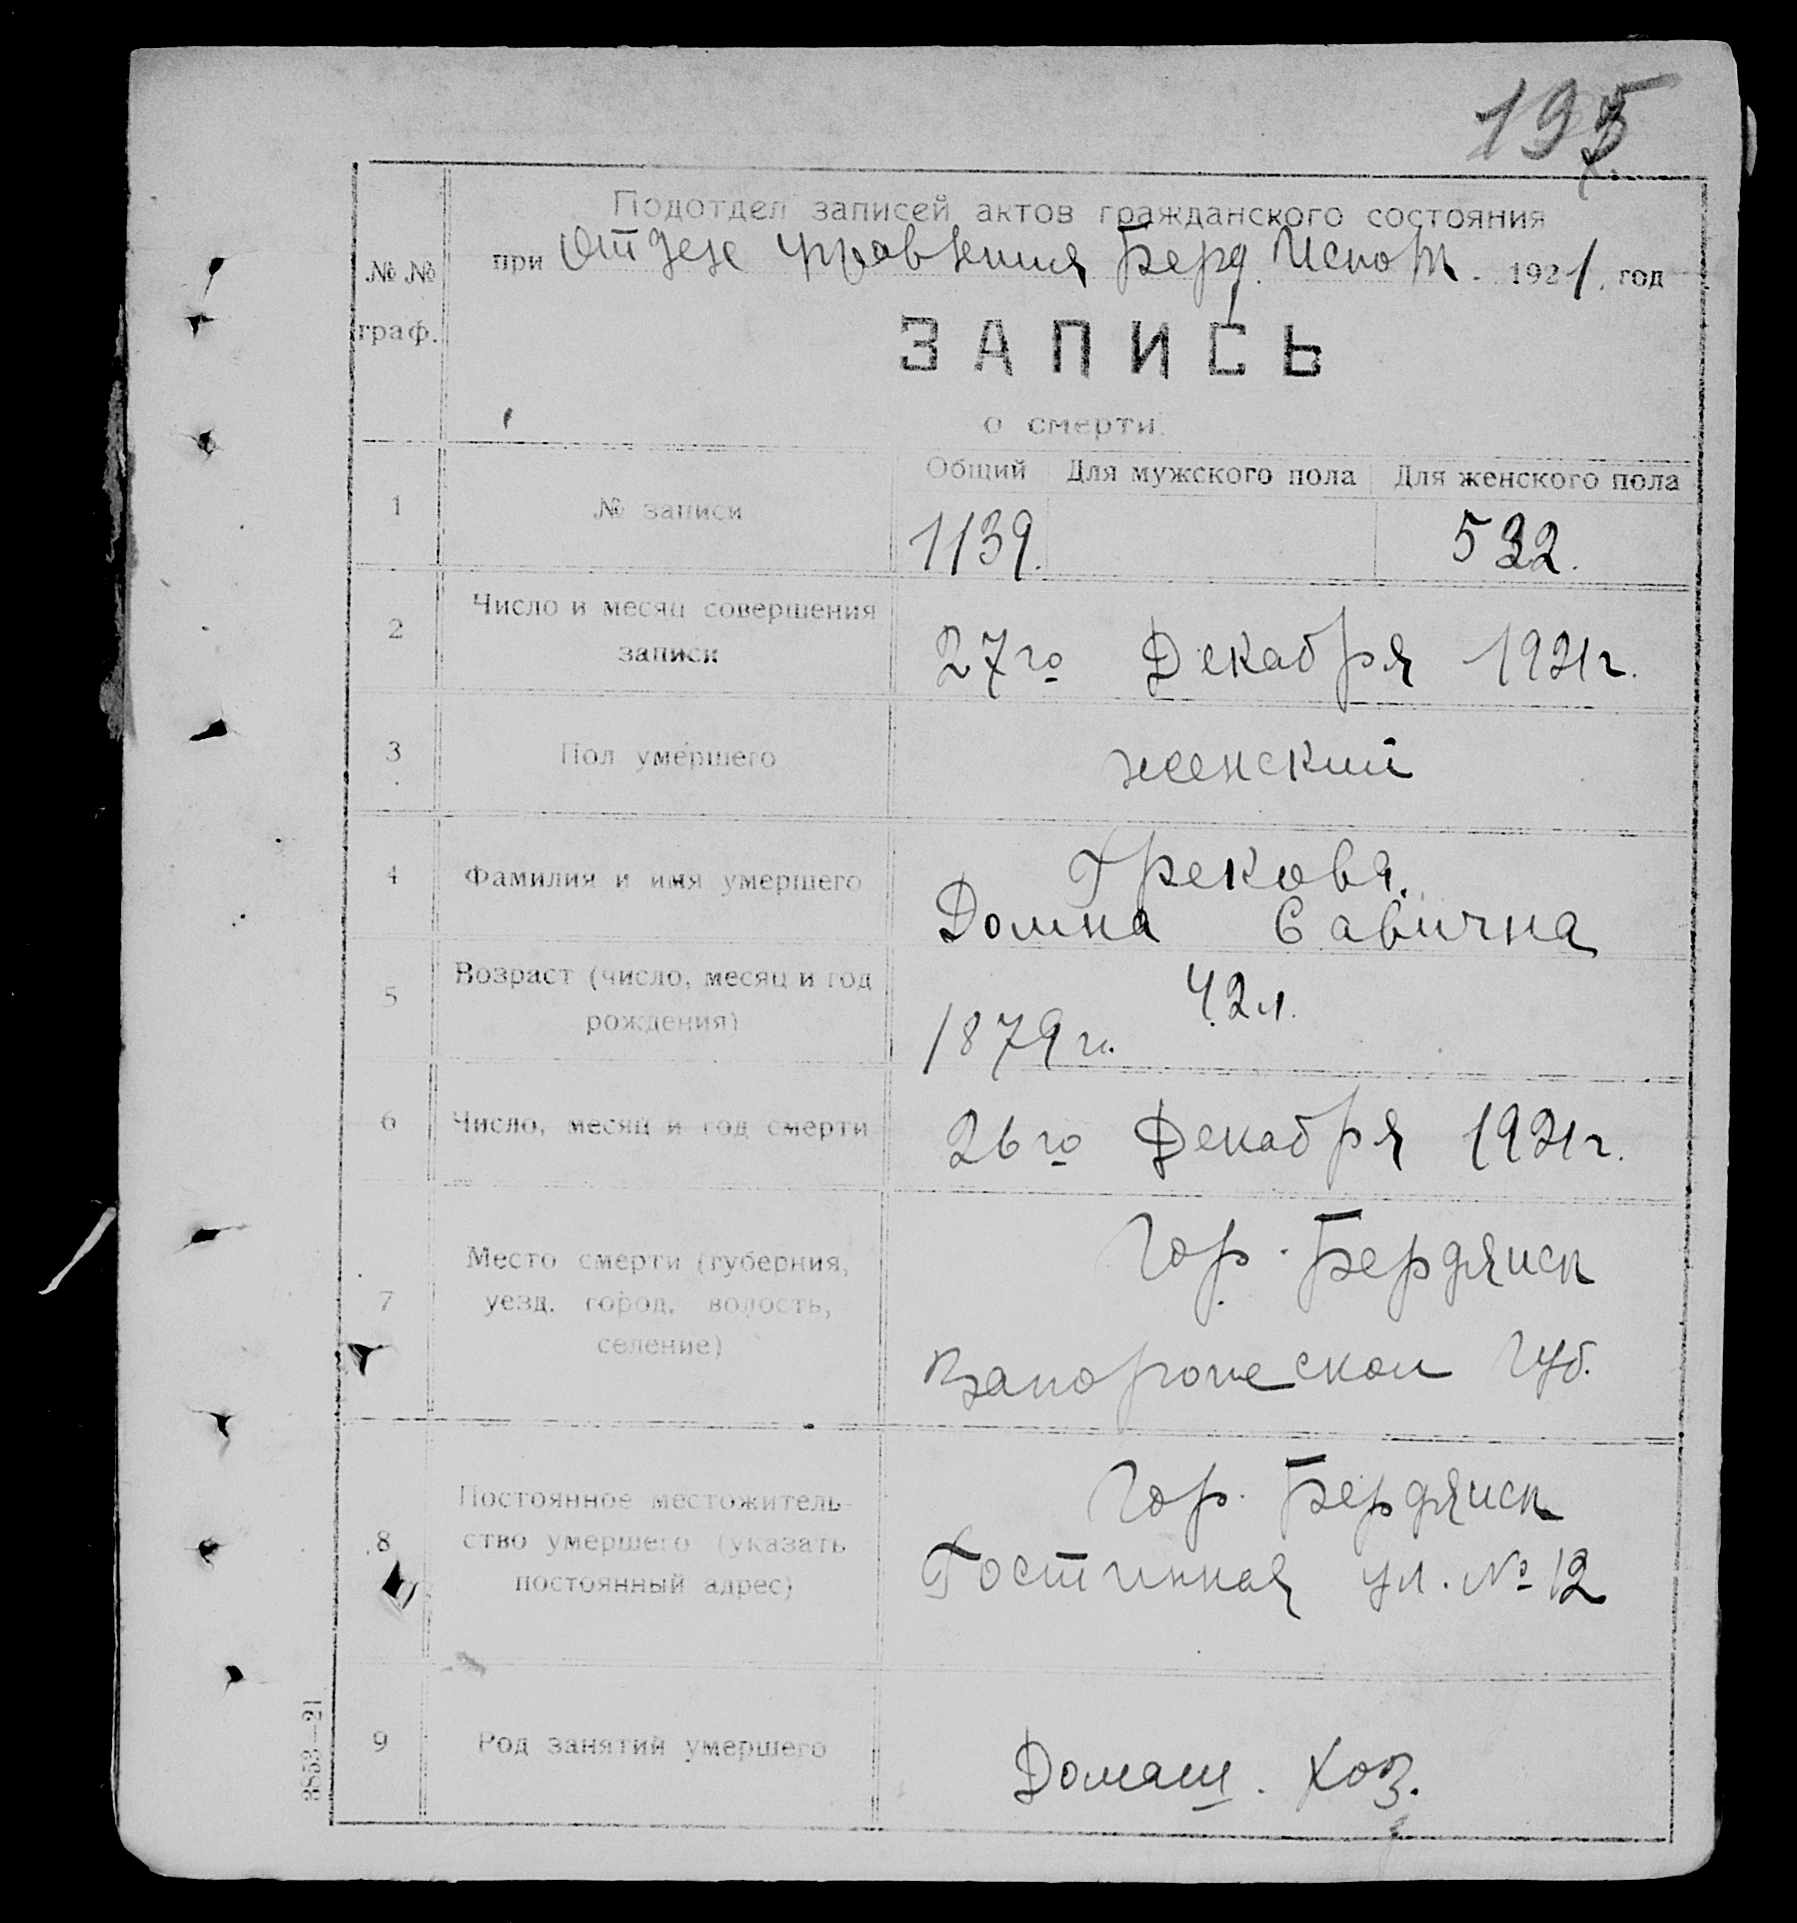 195
Подотдел записей актов гражданского состояния
при Отделе управления Берд. Исполк. 1921. год
№ №
граф.
ЗАПИСЬ
о смерти.
Общий Для мужского пола Для женского пола
1 № записи 1139. 532.
2 Число и месяц совершения
записи
27го Декабря 1921г.
3 Пол умершего женский
4 Фамилия и имя умершего Грекова.
Домна Савична
5 Возраст (число, месяц и год
рождения)
42л.
1879г.
6 Число, месяц и год смерти 26го Декабря 1921г.
7 Место смерти (губерния,
уезд, город, волость,
селение)
Гор. Бердянск
Запорожской Губ.
8 Постоянное местожитель-
ство умершего (указать
постоянный адрес)
Гор. Бердянск
Гостинная ул. № 12
9 Род занятий умершего Домаш. Хоз.
3853—21